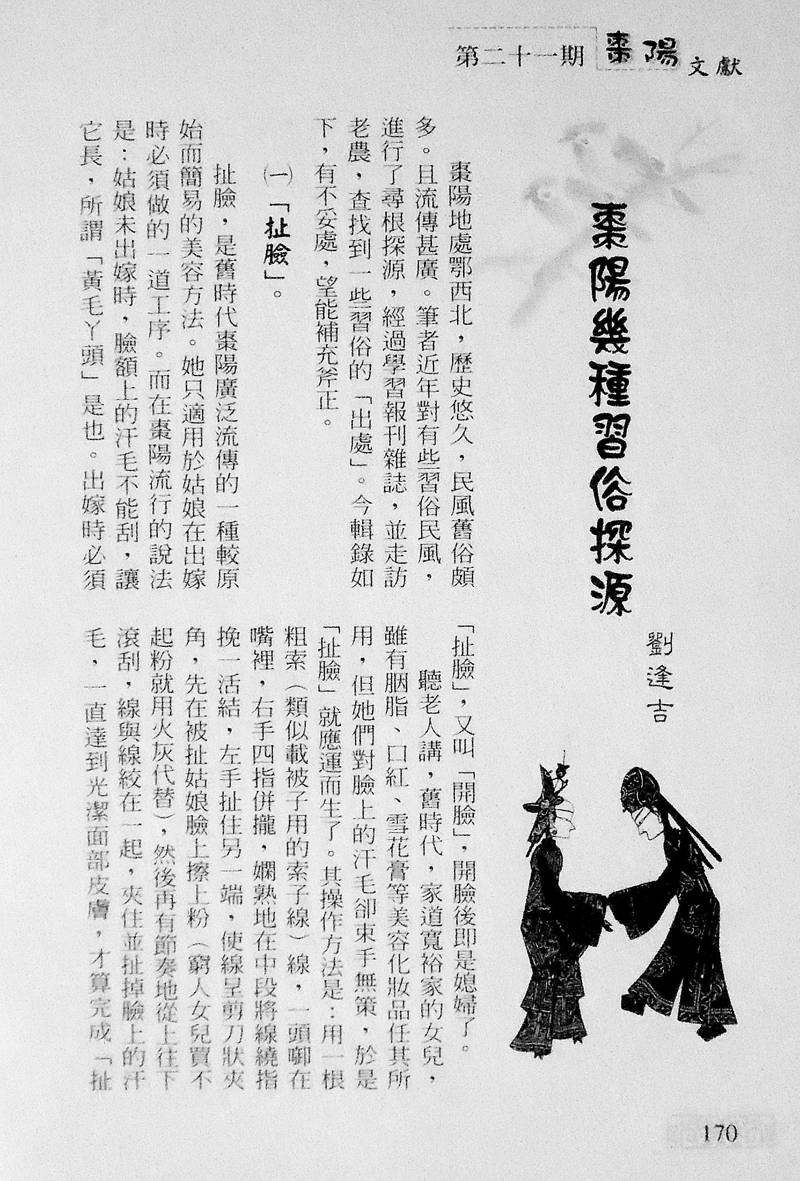 第二十一期 棗陽文獻
棗陽幾種習俗探源
劉逢吉
棗陽地處鄂西北，歷史悠久，民風舊俗頗
多。且流傳甚廣。筆者近年對有些習俗民風，
進行了尋根探源，經過學習報刊雜誌，並走訪
老農，查找到一些習俗的「出處」。今輯錄如
下，有不妥處，望能補充斧正。
㈠「扯臉」。
扯臉，是舊時代棗陽廣泛流傳的一種較原
始而簡易的美容方法。她只適用於姑娘在出嫁
時必須做的一道工序。而在棗陽流行的說法
是：姑娘未出嫁時，臉額上的汗毛不能刮，讓
它長，所謂「黃毛丫頭」是也。出嫁時必須
「扯臉」，又叫「開臉」，開臉後即是媳婦了。
聽老人講，舊時代，家道寬裕家的女兒，
雖有胭脂、口紅、雪花膏等美容化妝品任其所
用，但她們對臉上的汗毛卻束手無策，於是
「扯臉」就應運而生了。其操作方法是：用一根
粗索（類似載被子用的索子線）線，一頭啣在
嘴裡，右手四指併攏，嫻熟地在中段將線繞指
挽一活結，左手扯住另一端，使線呈剪刀狀夾
角，先在被扯姑娘臉上擦上粉（窮人女兒買不
起粉就用火灰代替），然後再有節奏地從上往下
滾刮，線與線絞在一起，夾住並扯掉臉上的汗
毛，一直達到光潔面部皮膚，才算完成「扯
170